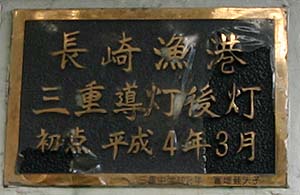 長崎漁港
三重導灯後灯
初点 平成4年3月